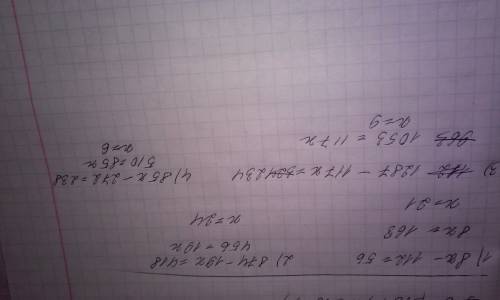 1) 8x - 112 = 56
8x = 168
x = 21
2) 874 - 19x = 418
456 = 19x
x = 24
3) 1287 - 117x = 234
1053 = 117x
x = 9
4) 85x - 272 = 238
510 = 85x
x = 6